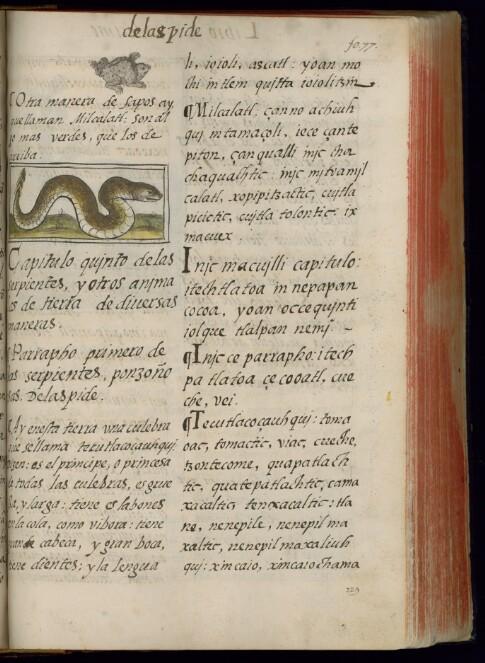 delaspide
fo. 77.
¶Otra manera de sapos ay
que llaman Milcalatl: son al
go mas verdes, que los de
arriba.
Capitulo quinto de las
serpientes, y otros anima
es de tierra de diversas
maneras.
¶Parrapho primero de
as serpientes, ponzoño
sas. Delaspide.
¶Ay enesta tierra una culebra
que se llama tecutlacocauhqui
dizen: es el principe, o princesa
de todas las culebras, es grue
sa, y larga: tiene eslabones
en la cola, como vibora: tiene
grande cabeça, y gran boca,
tiene dientes; y la lengua
li, ioioli, ascatl: yoan mo
chi intlein quitta ioiolitzin
¶Milcalatl, çan no achiuh
qui intamaçoli, iece çante
piton, çan qualli, mjc cha
chaquachtic: mjc mitvamjl
calatl, xopipitzaltic, cuitla
picictic, cuitla tolontic, ix
macuex.
Injc macuilli capitulo:
itechtlatoa in nepapan
cocoa, yoan occequjnti
iolque tlalpan nemj ~
¶Injc ce parrapho: itech
pa tlatoa ce cooatl, cue
che, vei.
¶Tecutlacocauhqui: toma
oac, tomactic, viac, cueche,
tzontecome, quapatlach
tic, quatepatlachtic, cama
xacaltic, tenxacaltic: tla
ne, nenepile, nenepil ma
xaltic, nenepil maxaliuh
qui: xincaio, xincaiochama
229